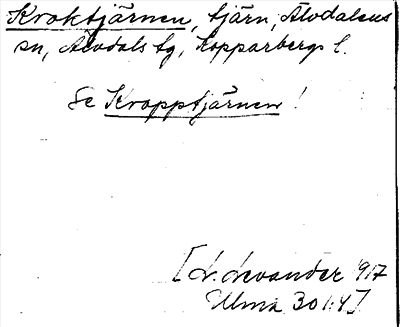 Kroktjärnen, tjärn, Älvdalens
sn, Älvdals tg, Kopparbergs l.
Se Kropptjärnen!
[L. Levander 1917
Ulma 301:4]